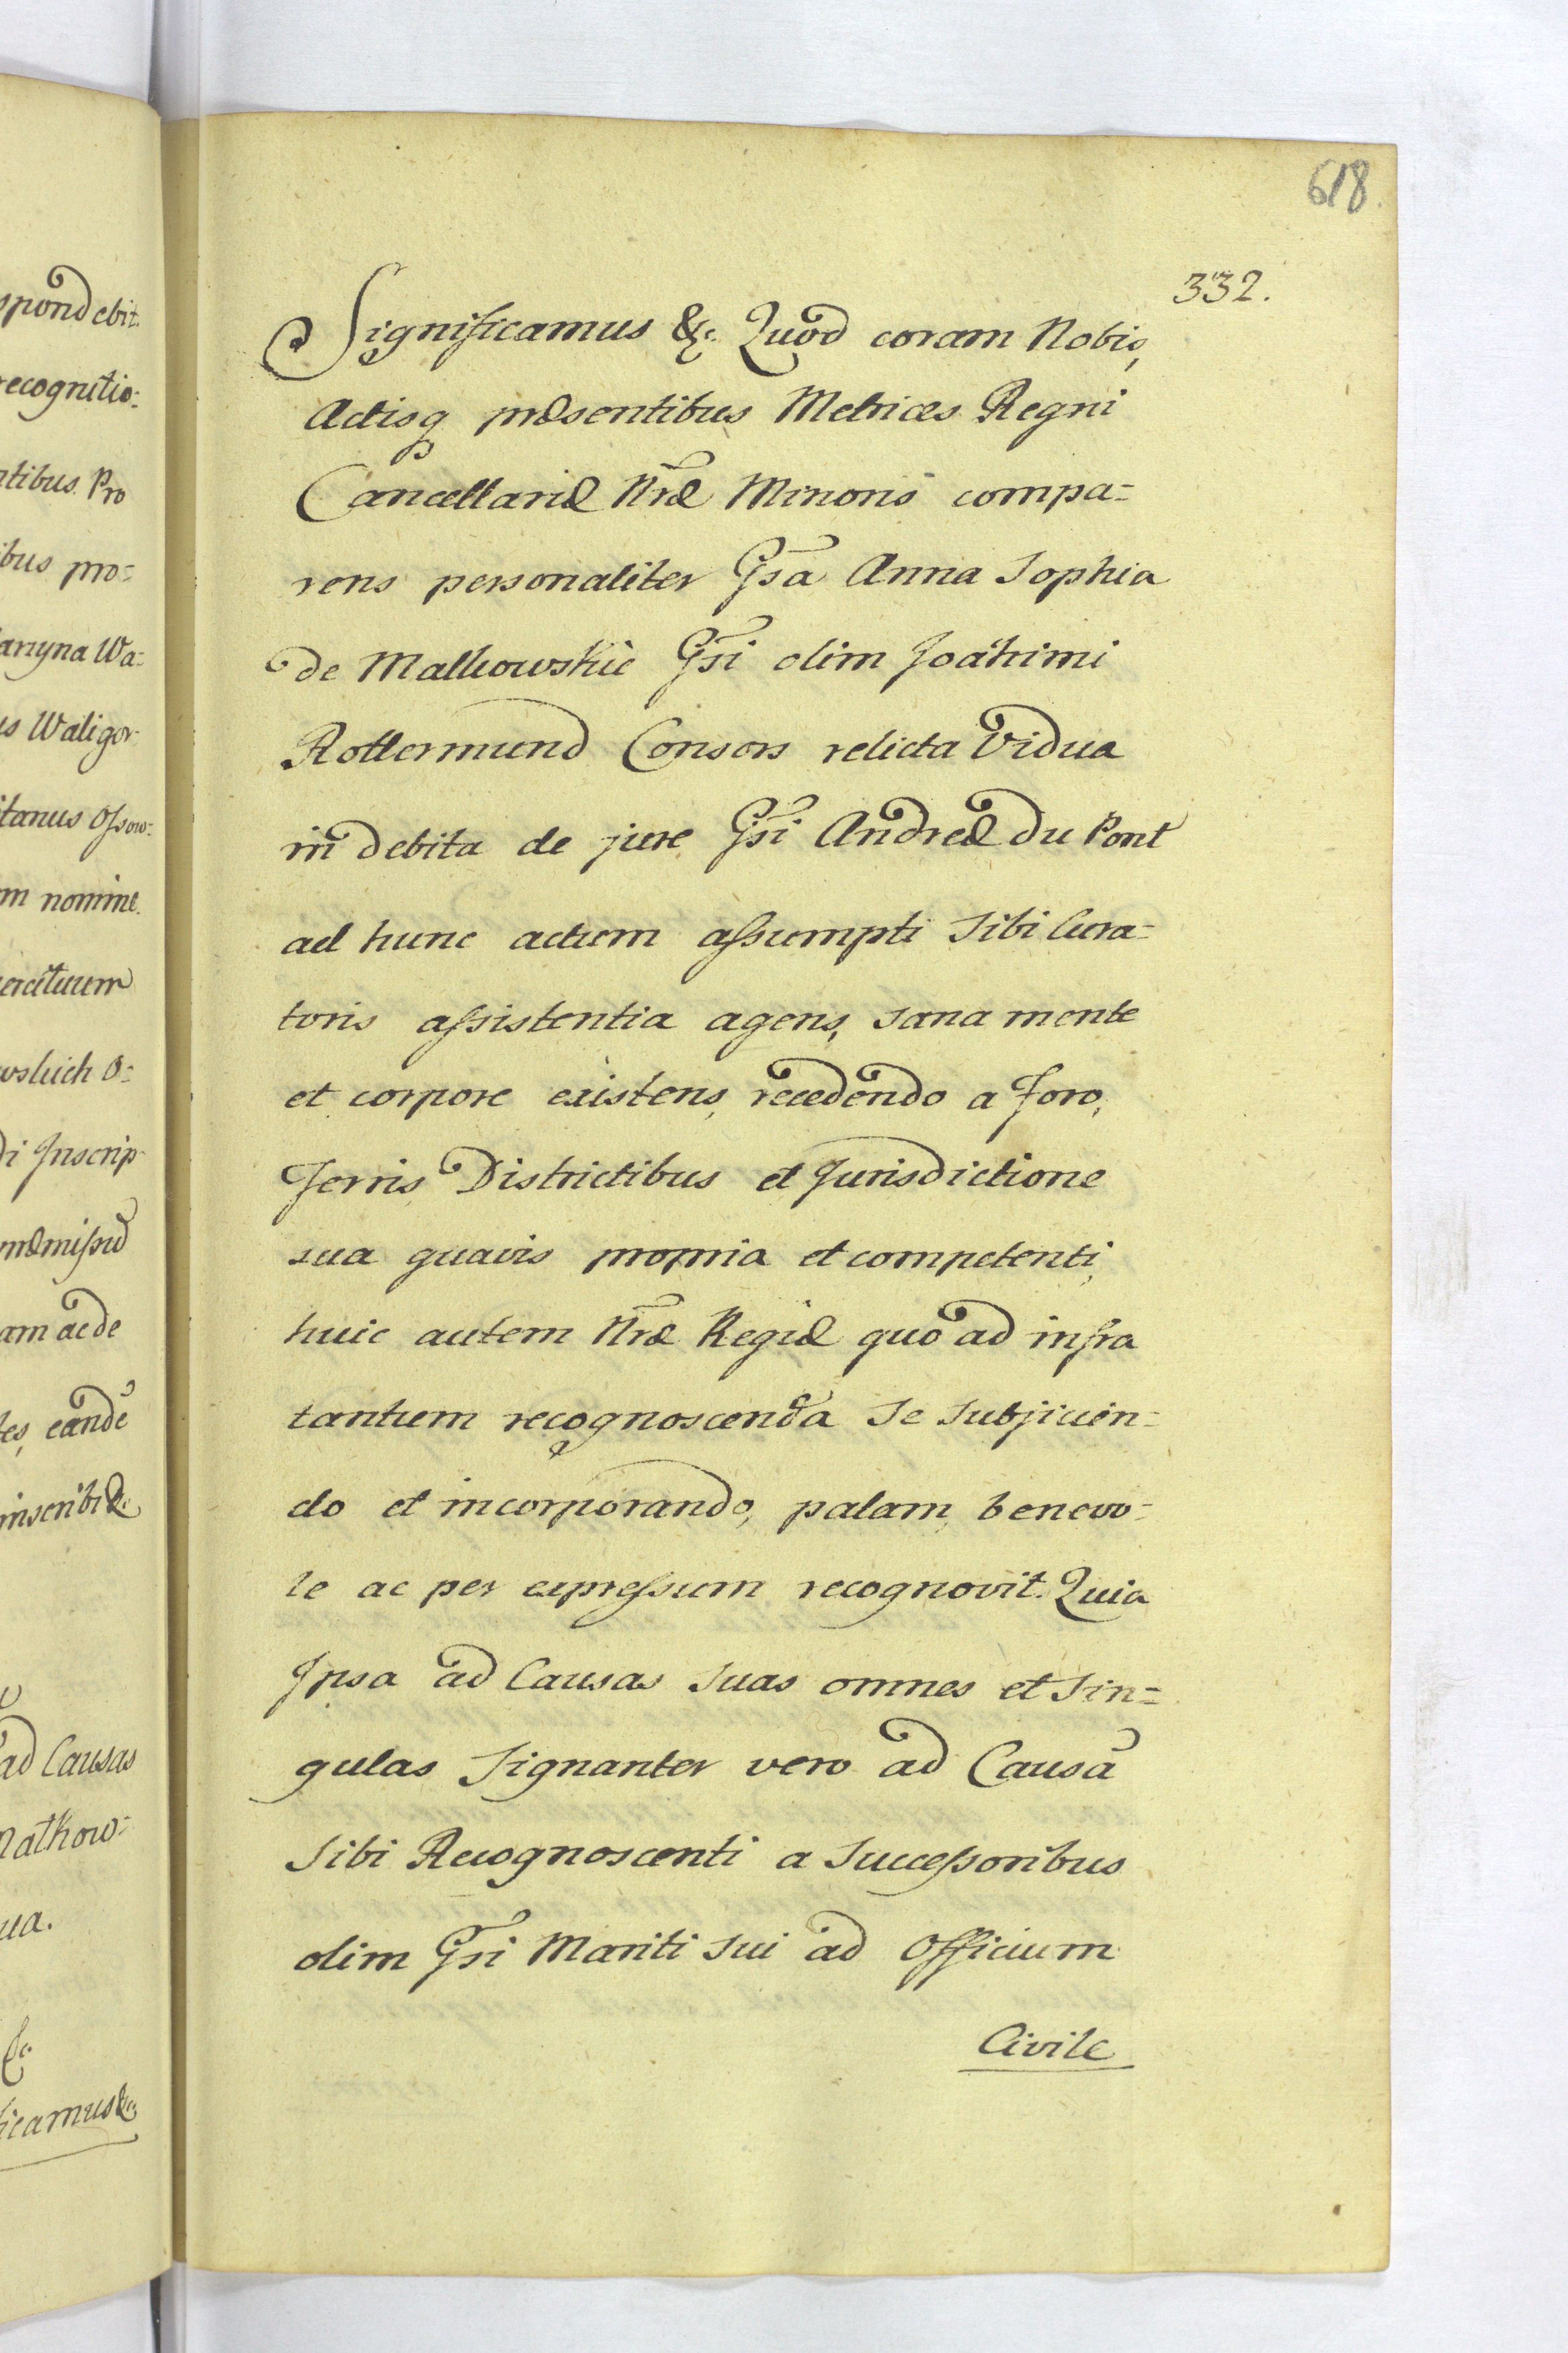 618.
332.
Significamus &c. Quod coram Nobis,
Actisq præsentibus Metrices Regni
Cancellariæ Nræ Minoris compa=
rens personaliter Gsa Anna Sophia
de Malkowskie Gsi olim Joachimi
Rottermund Consors relicta Vidua
in debita de jure Gsi Andreæ du Pont
ad hunc actum assumpti sibi Cura=
toris assistentia agens, sana mente
et corpore existens, recedendo a foro,
Terris, Districtibus et Jurisdictione
sua quavis propria et competenti,
huic autem Nræ Regiæ quo ad infra
tantum recognoscenda se subjicien=
do et incorporando, palam, benevo=
le ac per expressum recognovit. Quia
Ipsa ad Causas suas omnes et sin=
gulas signanter vero ad Causã
sibi Recognoscenti a Successoribus
olim Gsi Mariti sui ad Officium
Civile
spondebit.
recognitio=
ntibus Pro
ibus pro=
aryna Wa=
us Waligor
itanus Ossow=
m nomine
ercituum
wskich O=
di Inscrip
ræmissũ
am ac de
tes, eandẽ
inscribi &c.
ad Causas
Matkow=
ua.
&c.
icamus &c.